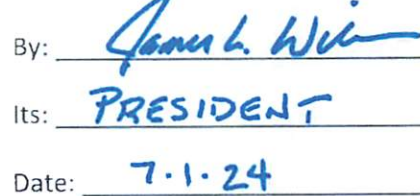 By: James L.
Its: PRESIDENT
Date: 7.1.24